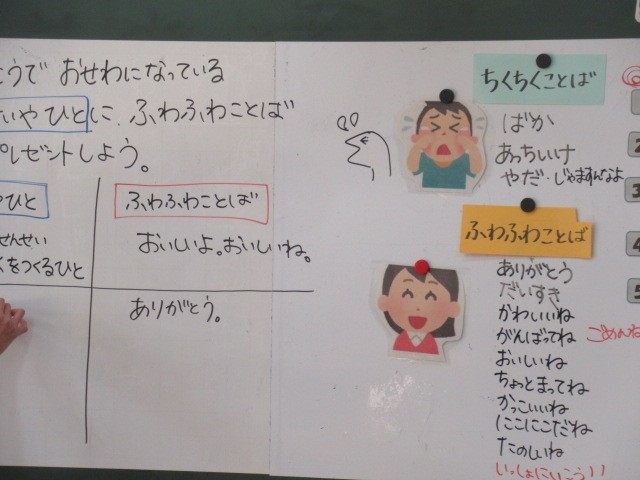 うで おせわになっている
やひとに、ふわふわことば
プレゼントしよう。
ひと
ふわふわことば
せんせい
をつくるひと
おいしいよ。おいしいね。
ありがとう。
ちくちくことば
ばか
あっちいけ
やだ・じゃますんなよ
ふわふわことば
ありがとう
だいすき
かわいいね
がんばってね
ごめんね
おいしいね
ちょっとまってね
かっこいいね
にこにこだね
たのしいね
いっしょにいこう!!
2
3
4
5